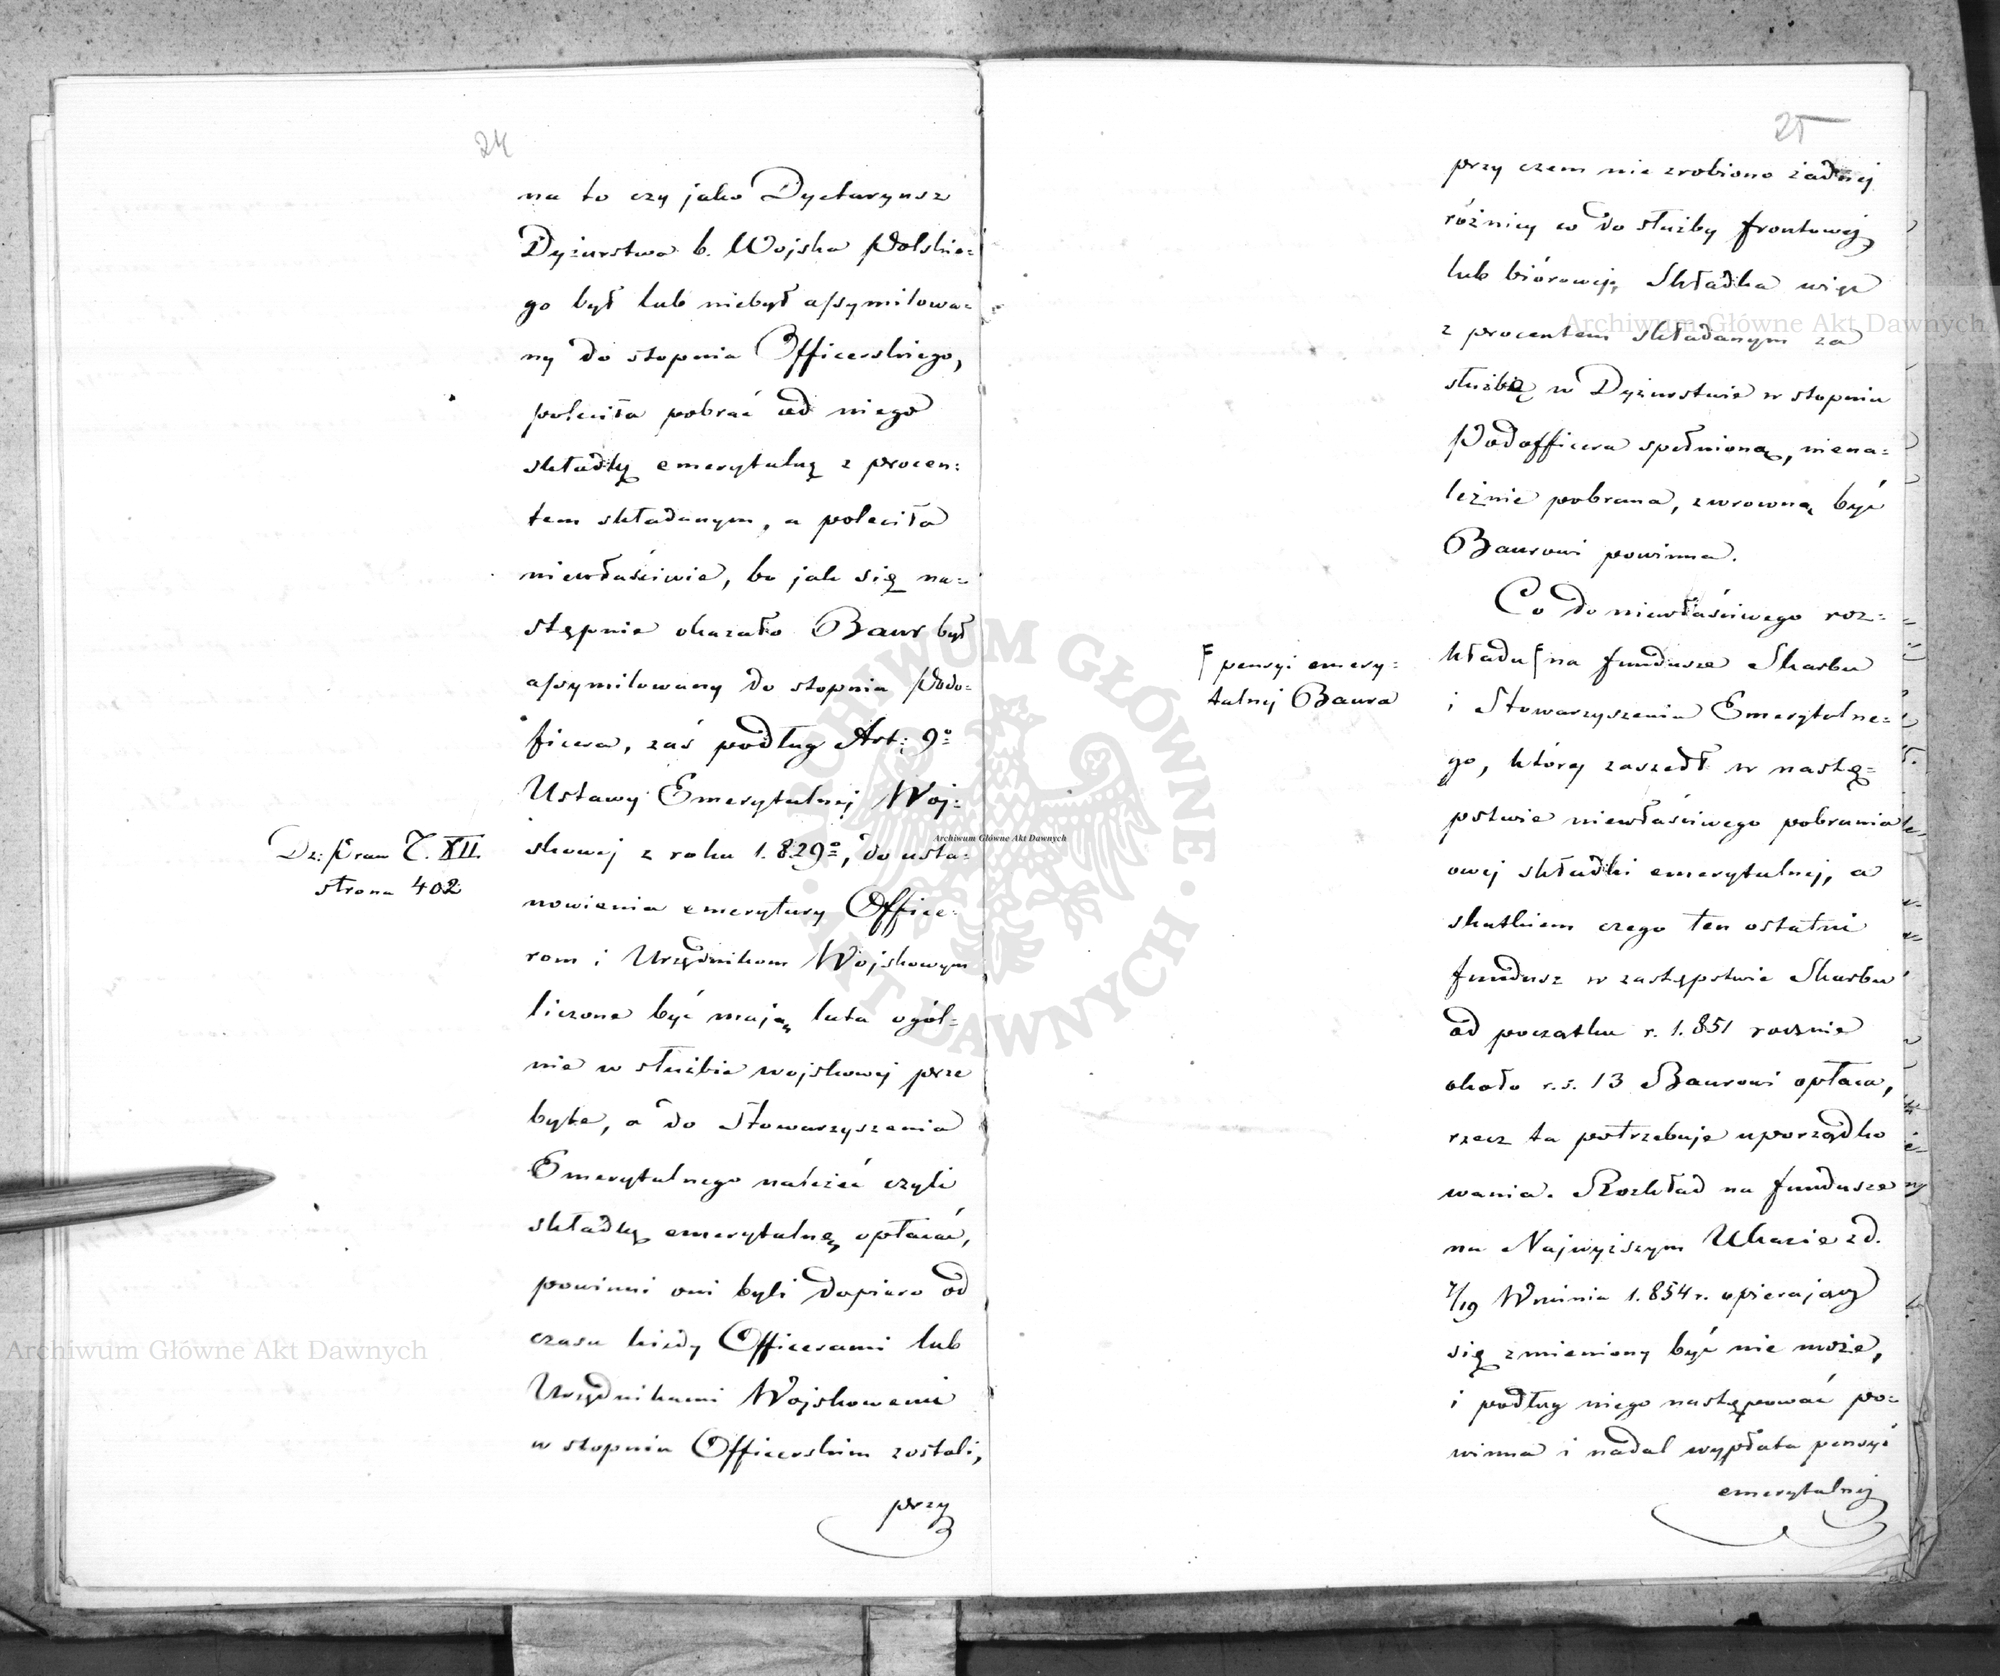 24
na to czy jako Dyetaryusz
Dyżurstwa b. Wojska Polskie=
go był lub niebył assymilowa=
ny do stopnia Officerskiego,
poleciła pobrać od niego
składkę emerytalną z procen=
tem składanym, a poleciła
niewłaściwie, bo jak się na=
stępnie okazało Baur był
assymilowany do stopnia Podo=
ficera, zaś podług Art: 9º
Ustawy Emerytalnej Woj=
Dz: Praw T. XII.
strona 402
skowej z roku 1.829º, do usta=
nowienia emerytury Office=
rom i Urzędnikom Wojskowym
liczone być mają lata ogól=
nie w służbie wojskowej prze
byte, a do Stowarzyszenia
Emerytalnego należeć czyli
składkę emerytalną opłacać,
powinni oni byli dopiero od
czasu kiedy Officerami lub
Urzędnikami Wojskowemi
w stopniu Officerskim zostali,
przy
25
przy czem nie zrobiono żadnej
różnicy co do służby frontowej,
lub biórowej, Składka więc
z procentem składanym za
służbę w Dyżurstwie w stopniu
Podofficera spełnioną, niena=
leżnie pobrana, zwrowną być
Baurowi powinna.
Co do niewłaściwego roz=
kładu F na fundusze Skarbu
F pensyi emery=
talnej Baura
i Stowarzyszenia Emerytalne=
go, który zaszedł w nastę=
pstwie niewłaściwego pobrania
owej składki emerytalnej, a
skutkiem czego ten ostatni
fundusz w zastępstwie Skarbu
od początku r. 1.851 rocznie
około r.s. 13 Baurowi opłaca,
rzecz ta potrzebuje uporządko
wania. Rozkład na fundusze
na Najwyższym Ukazie z d.
7/19 Września 1.854 r. opierający
się zmieniony być nie może,
i podług niego następować po=
winna i nadal wypłata pensyi
emerytalnej
Archiwum Główne Akt Dawnych
Archiwum Główne Akt Dawnych
Archiwum Główne Akt Dawnych
ARCHIWUM GŁÓWNE AKT DAWNYCH